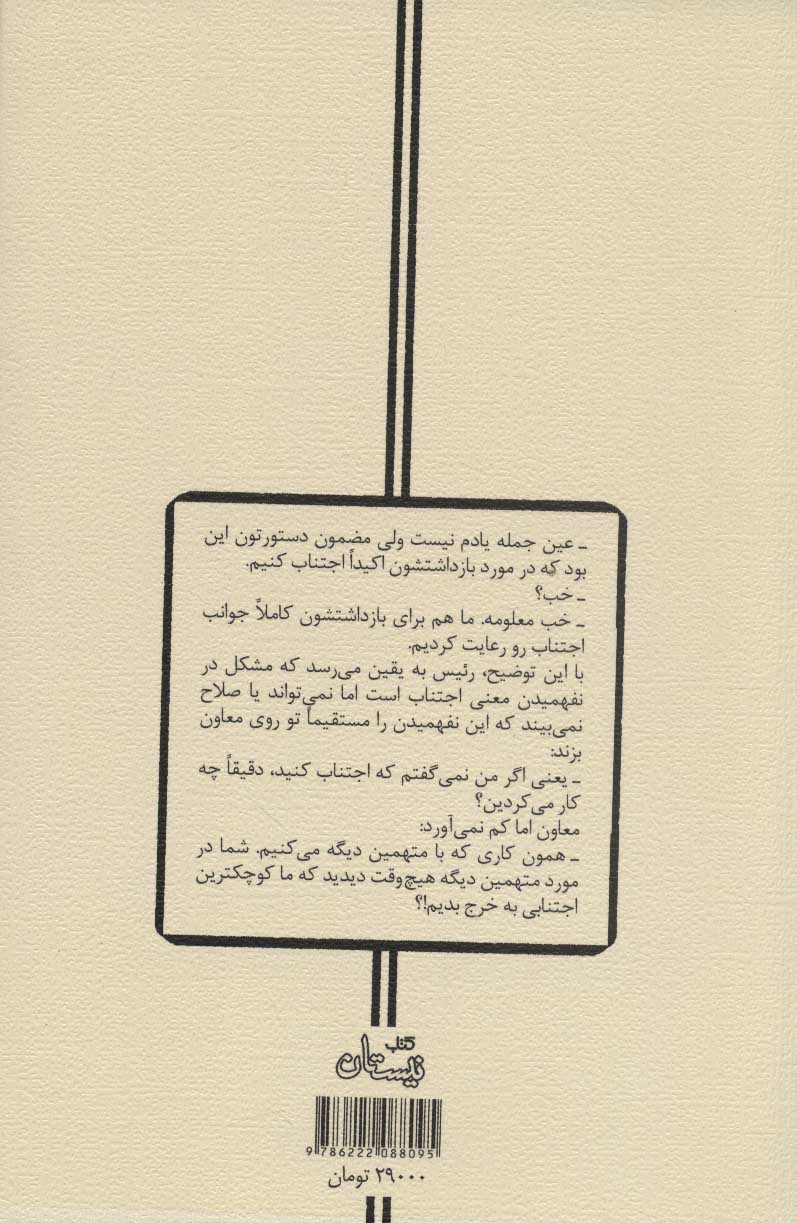 ـ عین جمله یادم نیست ولی مضمون دستورتون این
بود که در مورد بازداشتشون اکیداً اجتناب کنیم.
ـ خب؟
ـ خب معلومه. ما هم برای بازداشتشون کاملاً جوانب
اجتناب رو رعایت کردیم.
با این توضیح، رئیس به یقین می‌رسد که مشکل در
نفهمیدن معنی اجتناب است اما نمی‌تواند یا صلاح
نمی‌بیند که این نفهمیدن را مستقیماً تو روی معاون
بزند:
ـ یعنی اگر من نمی‌گفتم که اجتناب کنید، دقیقاً چه
کار می‌کردین؟
معاون اما کم نمی‌آورد:
ـ همون کاری که با متهمین دیگه می‌کنیم. شما در
مورد متهمین دیگه هیچ‌وقت دیدید که ما کوچکترین
اجتنابی به خرج بدیم!؟
کتاب
نیستان
9 786222 088095
۲۹۰۰۰ تومان